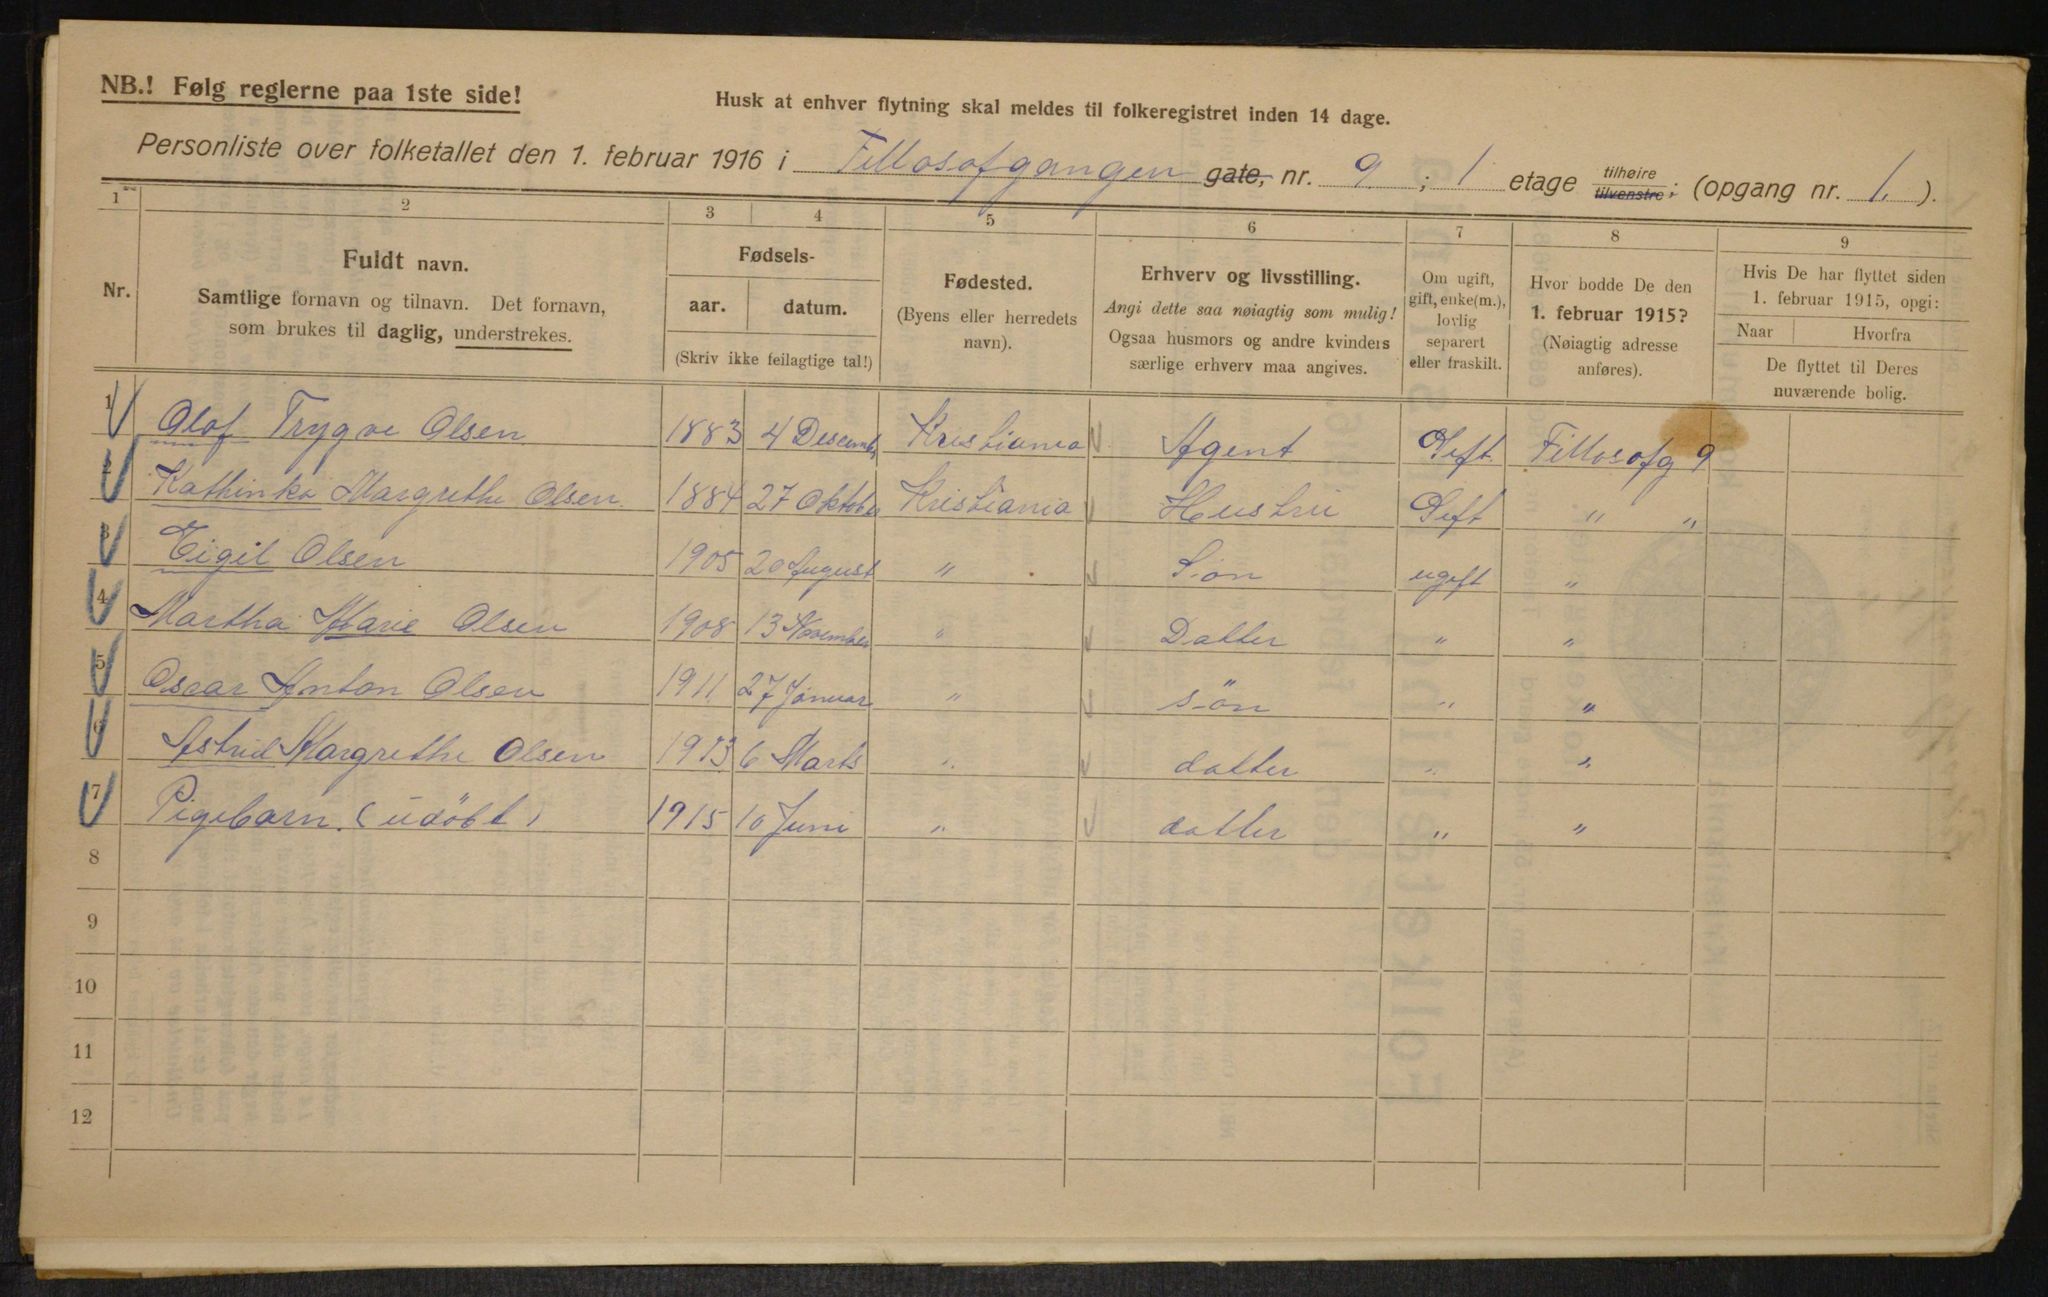 NB.! Følg reglerne paa 1ste side!
Husk at enhver flytning skal meldes til folkeregistret inden 14 dage.
Personliste over folketallet den 1. februar 1916 i Fillosofgangen gate, nr. 9 ; 1 etage tilhøire tilvenstre; (opgang nr. 1. ).
1 2 3 4 5 6 7 8 9
Nr.
Fuldt navn.
Samtlige fornavn og tilnavn. Det fornavn,
som brukes til daglig, understrekes.
Fødsels-
aar. datum.
(Skriv ikke feilagtige tal!)
Fødested.
(Byens eller herredets
navn).
Erhverv og livsstilling.
Angi dette saa nøiagtig som mulig!
Ogsaa husmors og andre kvinders
særlige erhverv maa angives.
Om ugift,
gift, enke(m.),
lovlig
separert
eller fraskilt.
Hvor bodde De den
1. februar 1915?
(Nøiagtig adresse
anføres).
Hvis De har flyttet siden
1. februar 1915, opgi:
Naar Hvorfra
De flyttet til Deres
nuværende bolig.
1 Olof Trygve Olsen 1883 4 Decemb Kristiania Agent Gift. Fillosofg 9
2 Kathinka Margrethe Olsen. 1884 27 Oktober Kristiania Hustru Gift " "
3 Eigil Olsen 1905 20 August " Søn ugift "
4 Martha Marie Olsen 1908 13 November " Datter " "
5 Oscar Anton Olsen 1911 27 Januar " sön " "
6 Astrid Margrethe Olsen 1913 6 Marts " datter " "
7 Pigebarn. (udöbt) 1915 10 Juni " datter " "
8
9
10
11
12